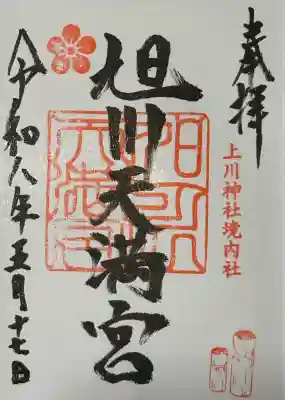 奉拝
上川神社境内社
旭川天満宮
令和八年五月十七日